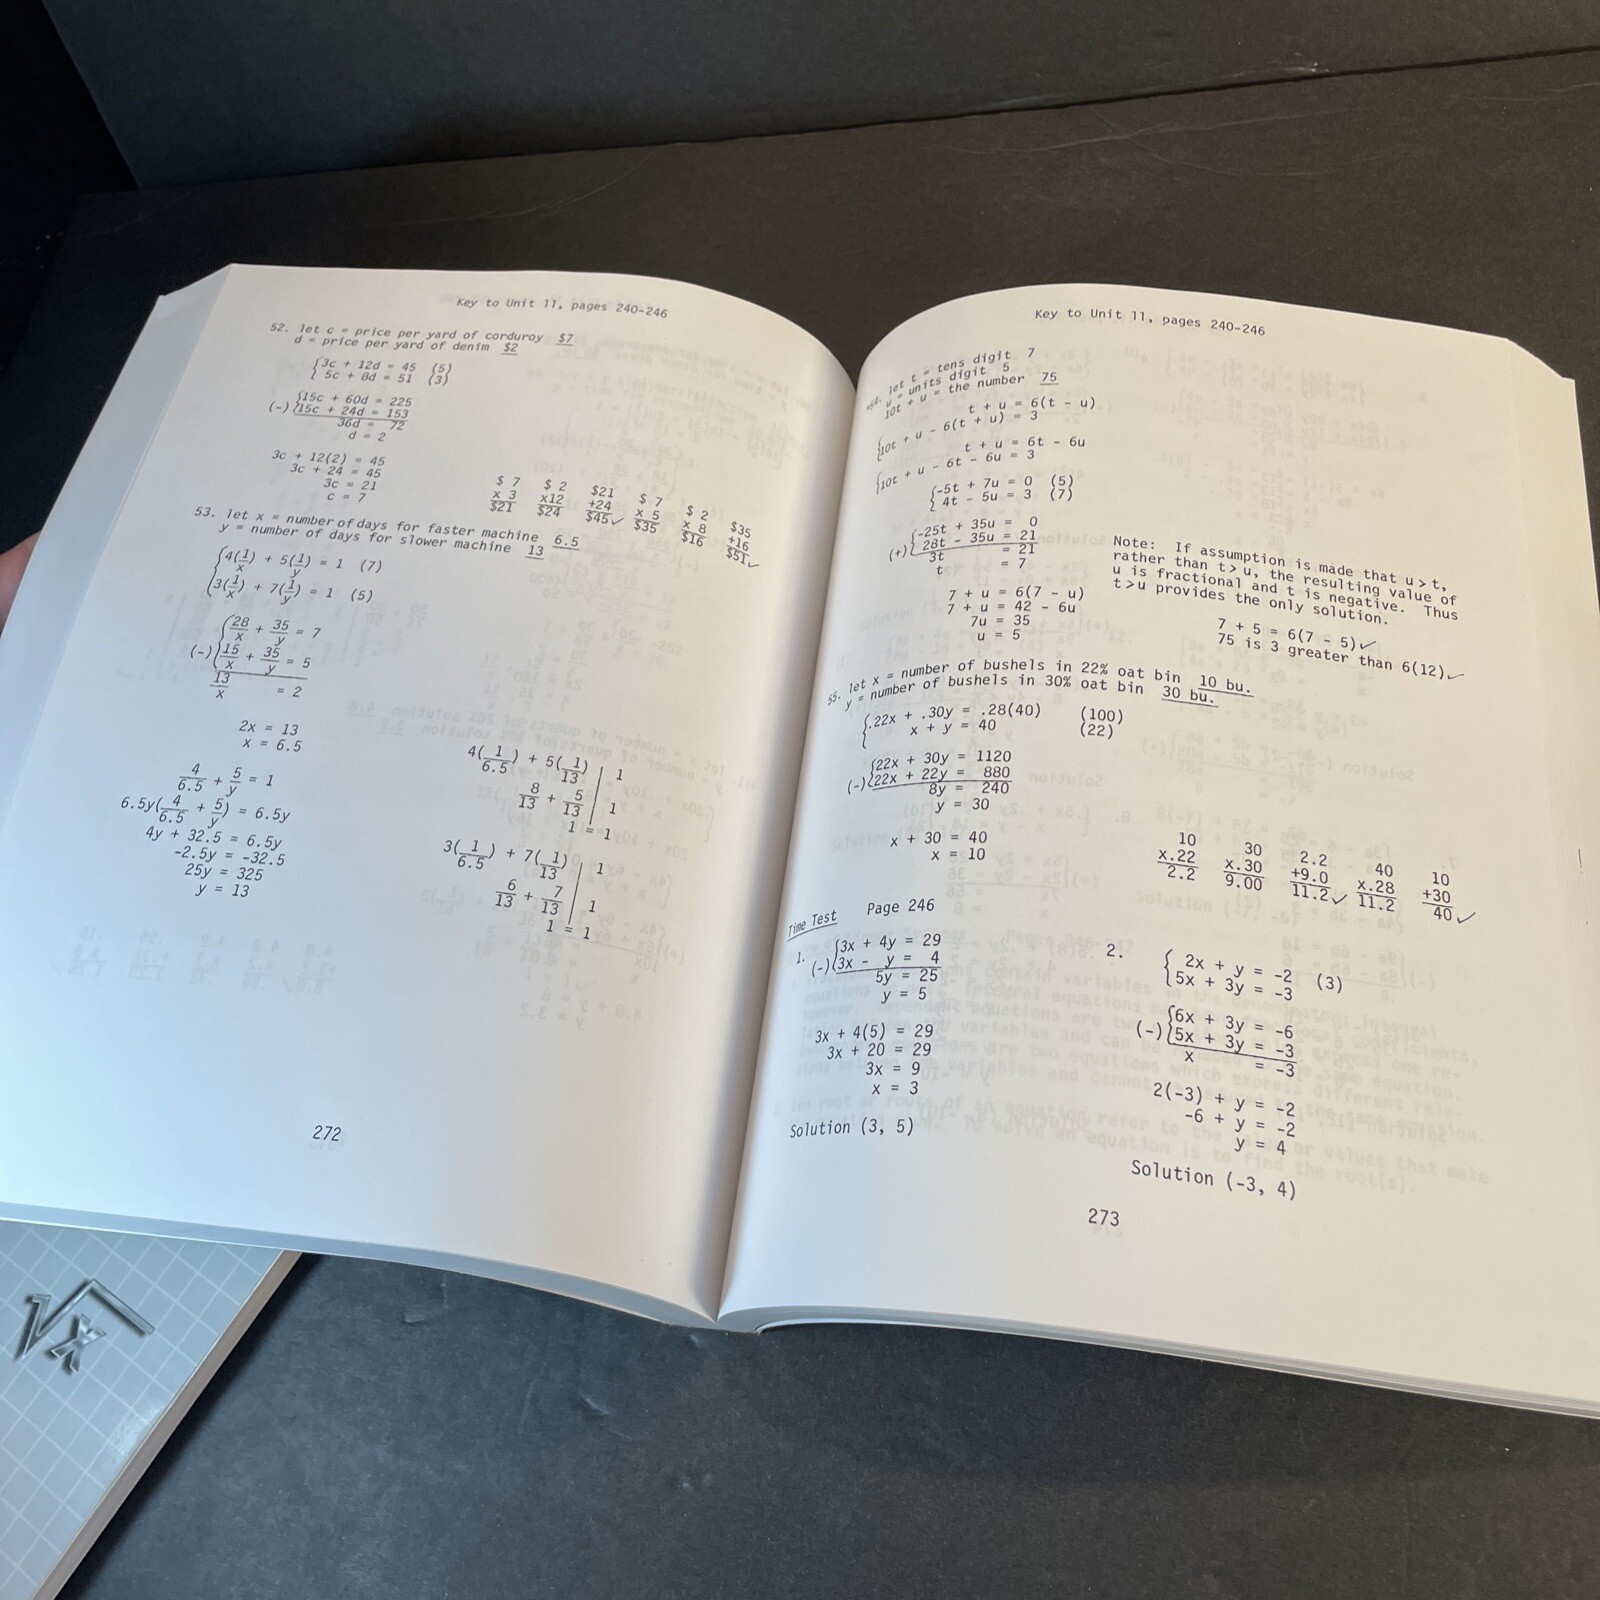 Key to Unit 11, pages 240-246
52. let c = price per yard of corduroy $7
d = price per yard of denim $2
{3c + 12d = 45 (5)
{5c + 8d = 51 (3)
{15c + 60d = 225
(-){15c + 24d = 153
36d = 72
d = 2
3c + 12(2) = 45
3c + 24 = 45
3c = 21
c = 7
$ 7 $ 2 $21 $ 7 $ 2 $35
x 3 x12 +24 x 5 x 8 +16
$21 $24 $45✓ $35 $16 $51✓
53. let x = number of days for faster machine 6.5
y = number of days for slower machine 13
{4(1/x) + 5(1/y) = 1 (7)
{3(1/x) + 7(1/y) = 1 (5)
{28/x + 35/y = 7
(-){15/x + 35/y = 5
13/x = 2
2x = 13
x = 6.5
4/6.5 + 5/y = 1
6.5y(4/6.5 + 5/y) = 6.5y
4y + 32.5 = 6.5y
-2.5y = -32.5
25y = 325
y = 13
4(1/6.5) + 5(1/13) | 1
8/13 + 5/13 | 1
1 = 1
3(1/6.5) + 7(1/13) | 1
6/13 + 7/13 | 1
1 = 1
272
Key to Unit 11, pages 240-246
54. let t = tens digit 7
u = units digit 5
10t + u = the number 75
{t + u = 6(t - u)
{10t + u - 6(t + u) = 3
{t + u = 6t - 6u
{10t + u - 6t - 6u = 3
{-5t + 7u = 0 (5)
{4t - 5u = 3 (7)
{-25t + 35u = 0
(+){28t - 35u = 21
3t = 21
t = 7
7 + u = 6(7 - u)
7 + u = 42 - 6u
7u = 35
u = 5
Note: If assumption is made that u > t,
rather than t> u, the resulting value of
u is fractional and t is negative. Thus
t>u provides the only solution.
7 + 5 = 6(7 - 5)✓
75 is 3 greater than 6(12)✓
55. let x = number of bushels in 22% oat bin 10 bu.
y = number of bushels in 30% oat bin 30 bu.
{.22x + .30y = .28(40) (100)
{x + y = 40 (22)
{22x + 30y = 1120
(-){22x + 22y = 880
8y = 240
y = 30
x + 30 = 40
x = 10
10 30 2.2 40 10
x.22 x.30 +9.0 x.28 +30
2.2 9.00 11.2✓ 11.2 40✓
Time Test Page 246
1. {3x + 4y = 29
(-){3x - y = 4
5y = 25
y = 5
3x + 4(5) = 29
3x + 20 = 29
3x = 9
x = 3
Solution (3, 5)
2. {2x + y = -2 (3)
{5x + 3y = -3
{6x + 3y = -6
(-){5x + 3y = -3
x = -3
2(-3) + y = -2
-6 + y = -2
y = 4
Solution (-3, 4)
273
√x